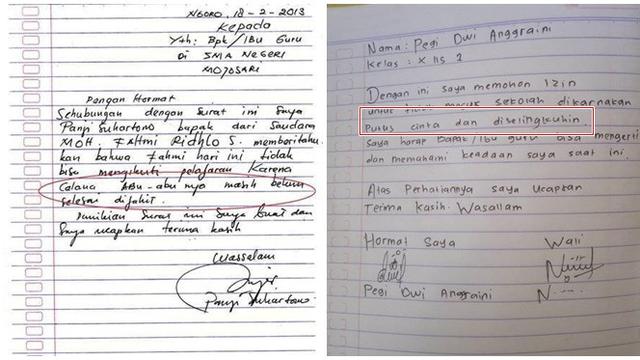 NGORO, 18-2-2013
Kepada
Yth: Bpk/Ibu Guru
Di SMA NEGERI
MOJOSARI
Dengan Hormat
Sehubungan dengan surat ini Saya
Panji Suhartono bapak dari saudara
MOH. FAHMI RIDHLO S. memberitahu
kan bahwa Fahmi hari ini tidak
bisa mengikuti pelajaran Karena
Celana Abu-abu nya masih belum
selesai dijahit.
Demikian Surat ini Saya buat dan
Saya ucapkan terima kasih
Wassalam
Panji Suhartono
Nama: Pegi Dwi Anggraini
Kelas: X IIS 2
Dengan ini saya memohon Izin
untuk tidak masuk sekolah dikarnakan
Putus cinta dan diselingkuhin.
Saya harap Bapak/Ibu guru bisa mengerti
dan memahami keadaan saya saat ini.
Atas Perhatiannya saya Ucapkan
Terima kasih. Wasallam
Hormat Saya Wali
Pegi Dwi Anggraini N----